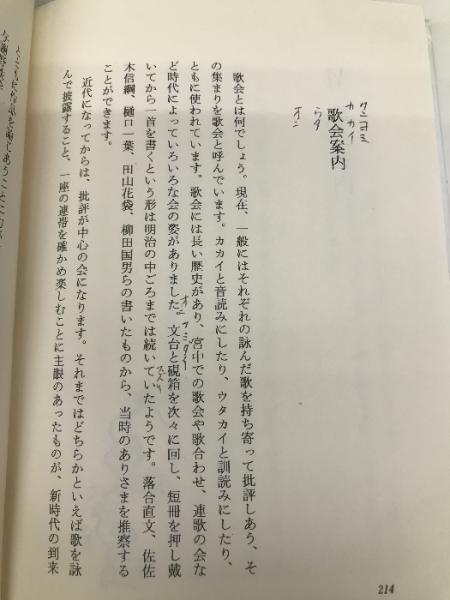 歌会案内
カカイ
ウタ
歌会とは何でしょう。現在、一般にはそれぞれの詠んだ歌を持ち寄って批評しあう、そ
の集まりを歌会と呼んでいます。カカイと音読みにしたり、ウタカイと訓読みにしたり、
ともに使われています。歌会には長い歴史があり、宮中での歌会や歌合わせ、連歌の会な
ど時代によっていろいろな会の姿がありました。文台と硯箱を次々に回し、短冊を押し戴
いてから一首を書くという形は明治の中ごろまでは続いていたようです。落合直文、佐佐
木信綱、樋口一葉、田山花袋、柳田国男らの書いたものから、当時のありさまを推察する
ことができます。
近代になってからは、批評が中心の会になります。それまではどちらかといえば歌を詠
んで披露すること、一座の連帯を確かめ楽しむことに主眼のあったものが、新時代の到来
214